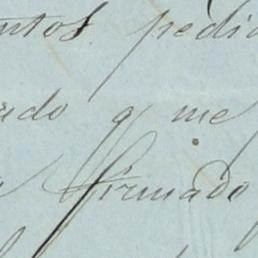 ntos pedi
do q me
firmado